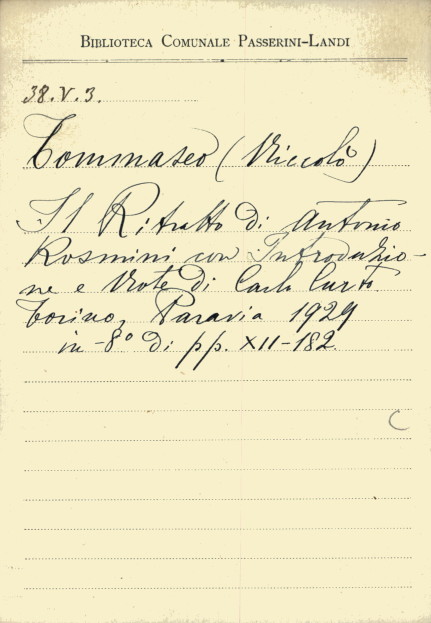 BIBLIOTECA COMUNALE PASSERINI-LANDI
38.V.3.
Tommaseo (Niccolò)
Il Ritratto di Antonio
Rosmini con Introduzio-
ne e Note di Carlo Curto.
Torino, Paravia 1929
in-8° di pp. XII-182.
C